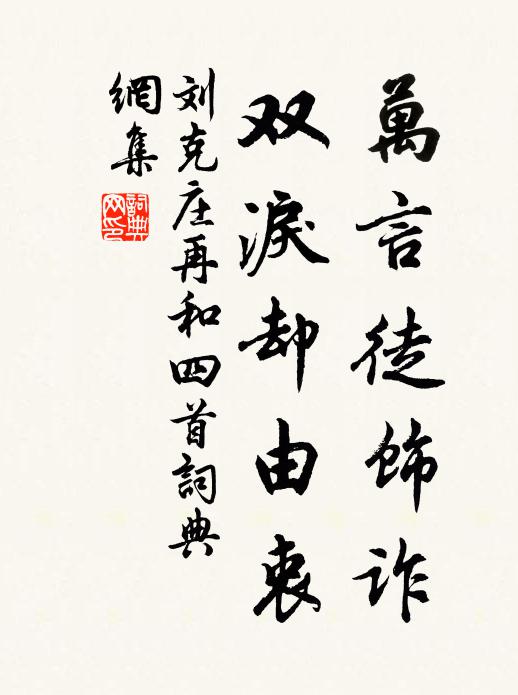 萬言徒飾詐
双淚却由衷
刘克庄再和四首詞典
網集
詞典
网印